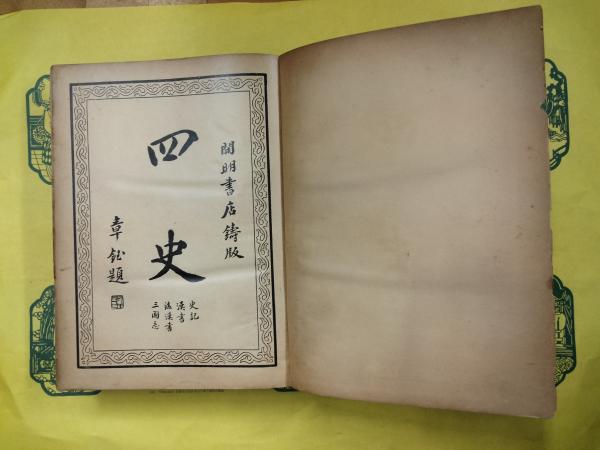 開明書店鑄版
四史
史記
漢書
後漢書
三國志
章鈺題